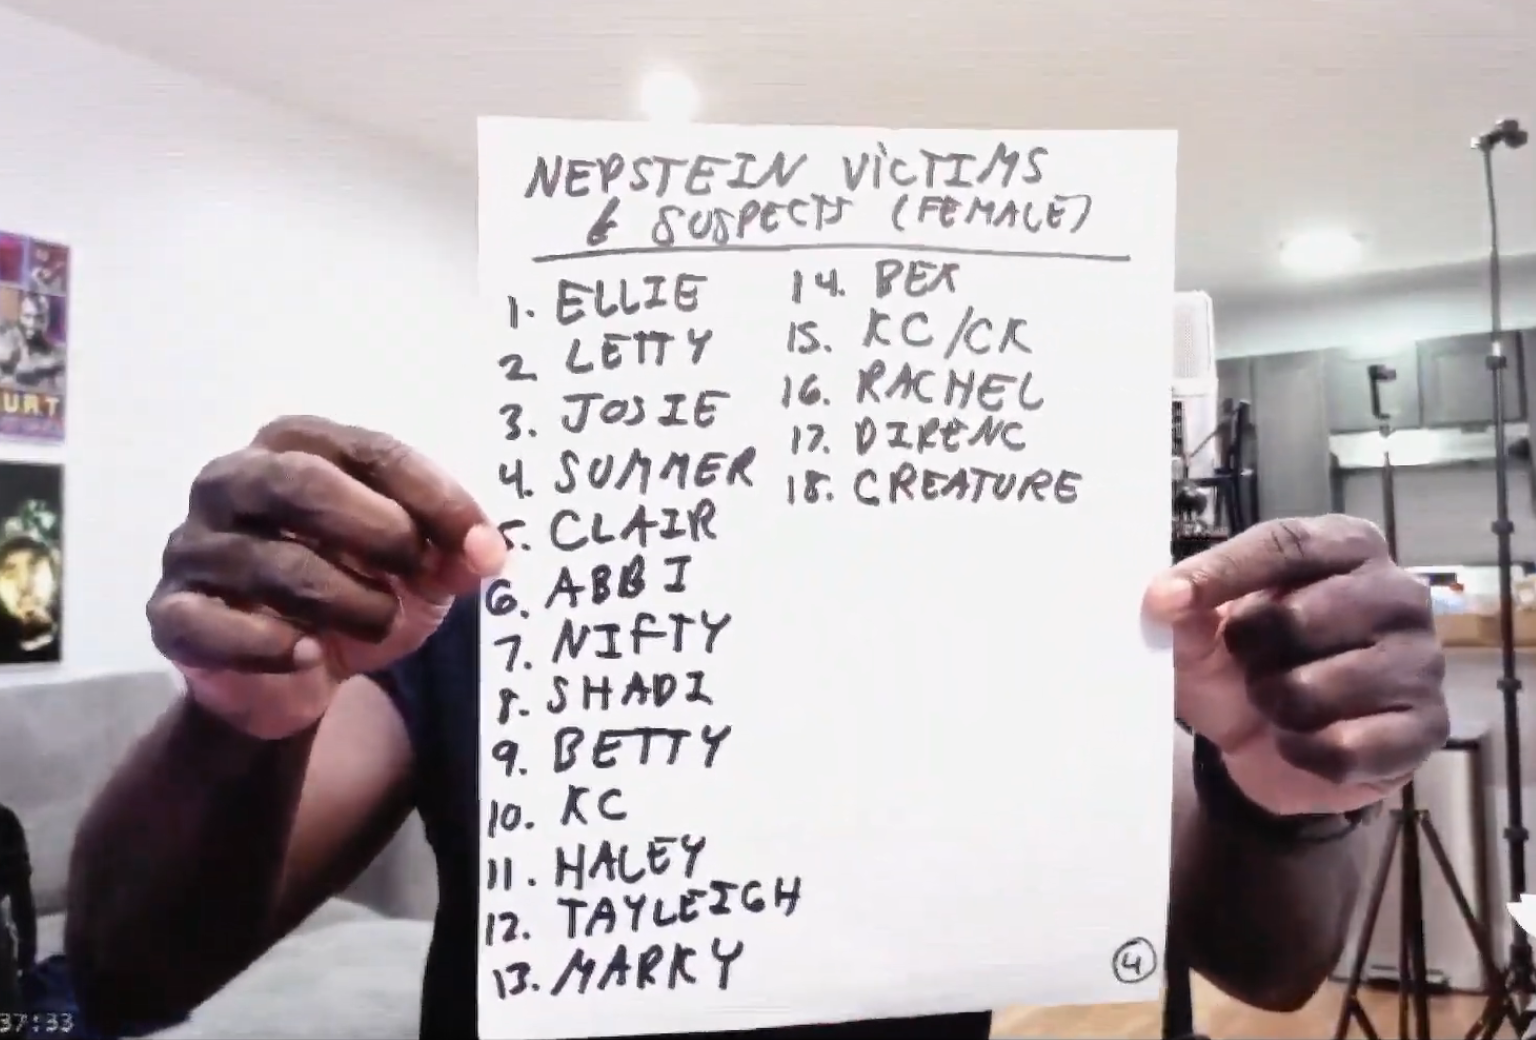 NEPSTEIN VICTIMS
& SUSPECTS (FEMALE)
1. ELLIE
2 LETTY
3. JOSIE
4. SUMMER
5. CLAIR
6. ABBI
7. NIFTY
8. SHADI
9. BETTY
10. KC
11. HALEY
12. TAYLEIGH
13. MARKY
14. BEX
15. KC/CK
16. RACHEL
17. DIRENC
18. CREATURE
4
URT
37:33